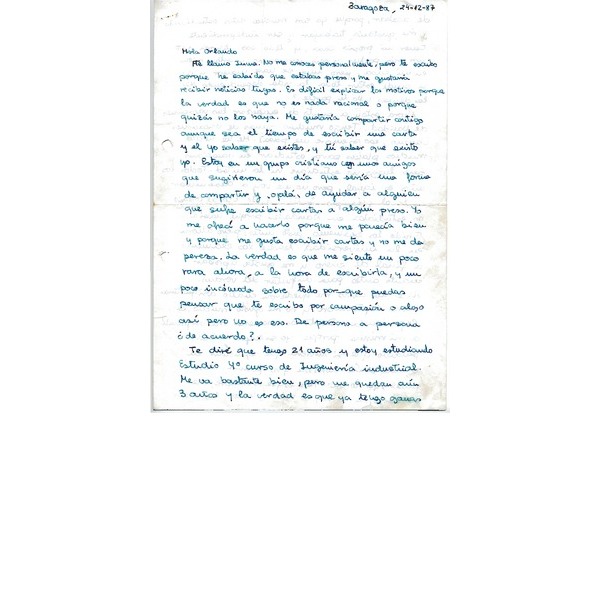 Zaragoza, 24-12-87
Hola Orlando
Me llamo Inma. No me conoces personalmente, pero te escribo
porque he sabido que estabas preso y me gustaría
recibir noticias tuyas. Es difícil explicar los motivos porque
la verdad es que no es nada racional o porque
quizás no los haya. Me gustaría compartir contigo
aunque sea el tiempo de escribir una carta
y el yo saber que existes, y tú saber que existo
yo. Estoy en un grupo cristiano con unos amigos
que sugirieron un día que sería una forma
de compartir y, ojalá, de ayudar a alguien
que sufre escribir cartas a algún preso. Yo
me ofrecí a hacerlo porque me parecía bien
y porque me gusta escribir cartas y no me da
pereza. La verdad es que me siento un poco
rara ahora, a la hora de escribirla, y un
poco incómoda sobre todo por-que puedas
pensar que te escribo por compasión o algo
así pero no es eso. De persona a persona
¿de acuerdo?.
Te diré que tengo 21 años y estoy estudiando
Estudio 4º curso de Ingeniería industrial.
Me va bastante bien, pero me quedan aún
3 años y la verdad es que ya tengo ganas